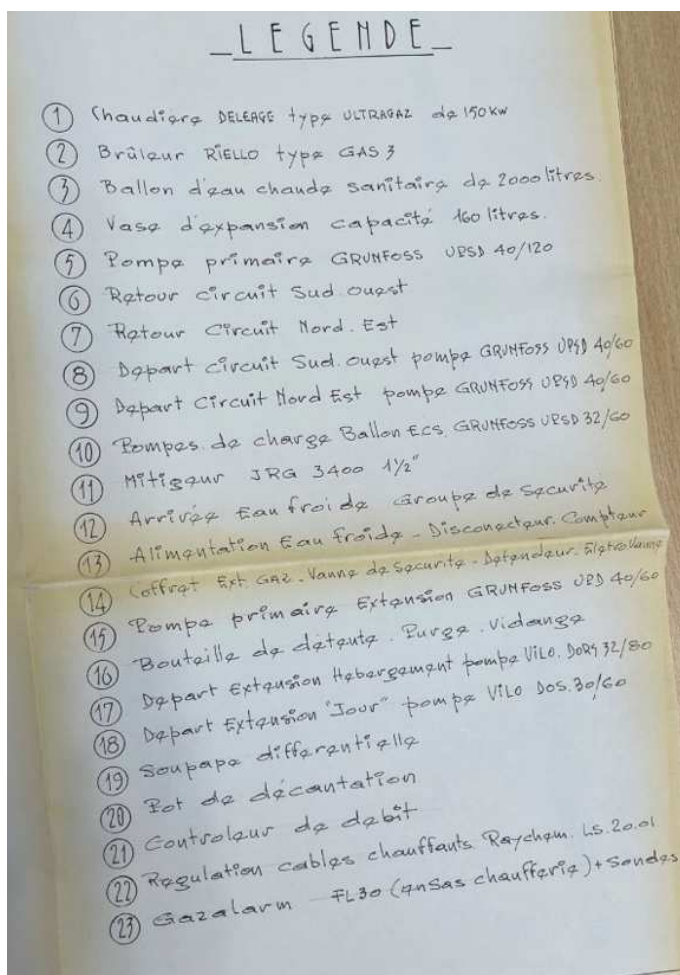 LEGENDE
1 Chaudière DELEAGE type ULTRAGAZ de 150 kw
2 Brûleur RIELLO type GAS 3
3 Ballon d'eau chaude sanitaire de 2000 litres.
4 Vase d'expansion capacité 160 litres.
5 Pompe primaire GRUNFOSS UPSD 40/120
6 Retour circuit Sud.ouest
7 Retour Circuit Nord.Est
8 Depart circuit Sud.ouest pompe GRUNFOSS UPSD 40/60
9 Depart Circuit Nord Est pompe GRUNFOSS UPSD 40/60
10 Pompes de charge Ballon ECS. GRUNFOSS UPSD 32/60
11 Mitigeur JRG 3400 1 1/2"
12 Arrivée Eau froide Groupe de Securite
13 Alimentation Eau froide - Disconecteur. Compteur
14 Coffret Ext. GAZ. Vanne de Securite - Detendeur. EletroVanne
15 Pompe primaire Extension GRUNFOSS UPD 40/60
16 Bouteille de détente. Purge. Vidange
17 Depart Extension Hebergement pompe VILO. DORS 32/80
18 Depart Extension "Jour" pompe VILO DOS.30/60
19 Soupape differentielle
20 Pot de décantation
21 Controleur de debit
22 Regulation cables chauffants Raychem. LS.20.01
23 Gazalarm FL30 (en Sas chaufferie) + Sondes